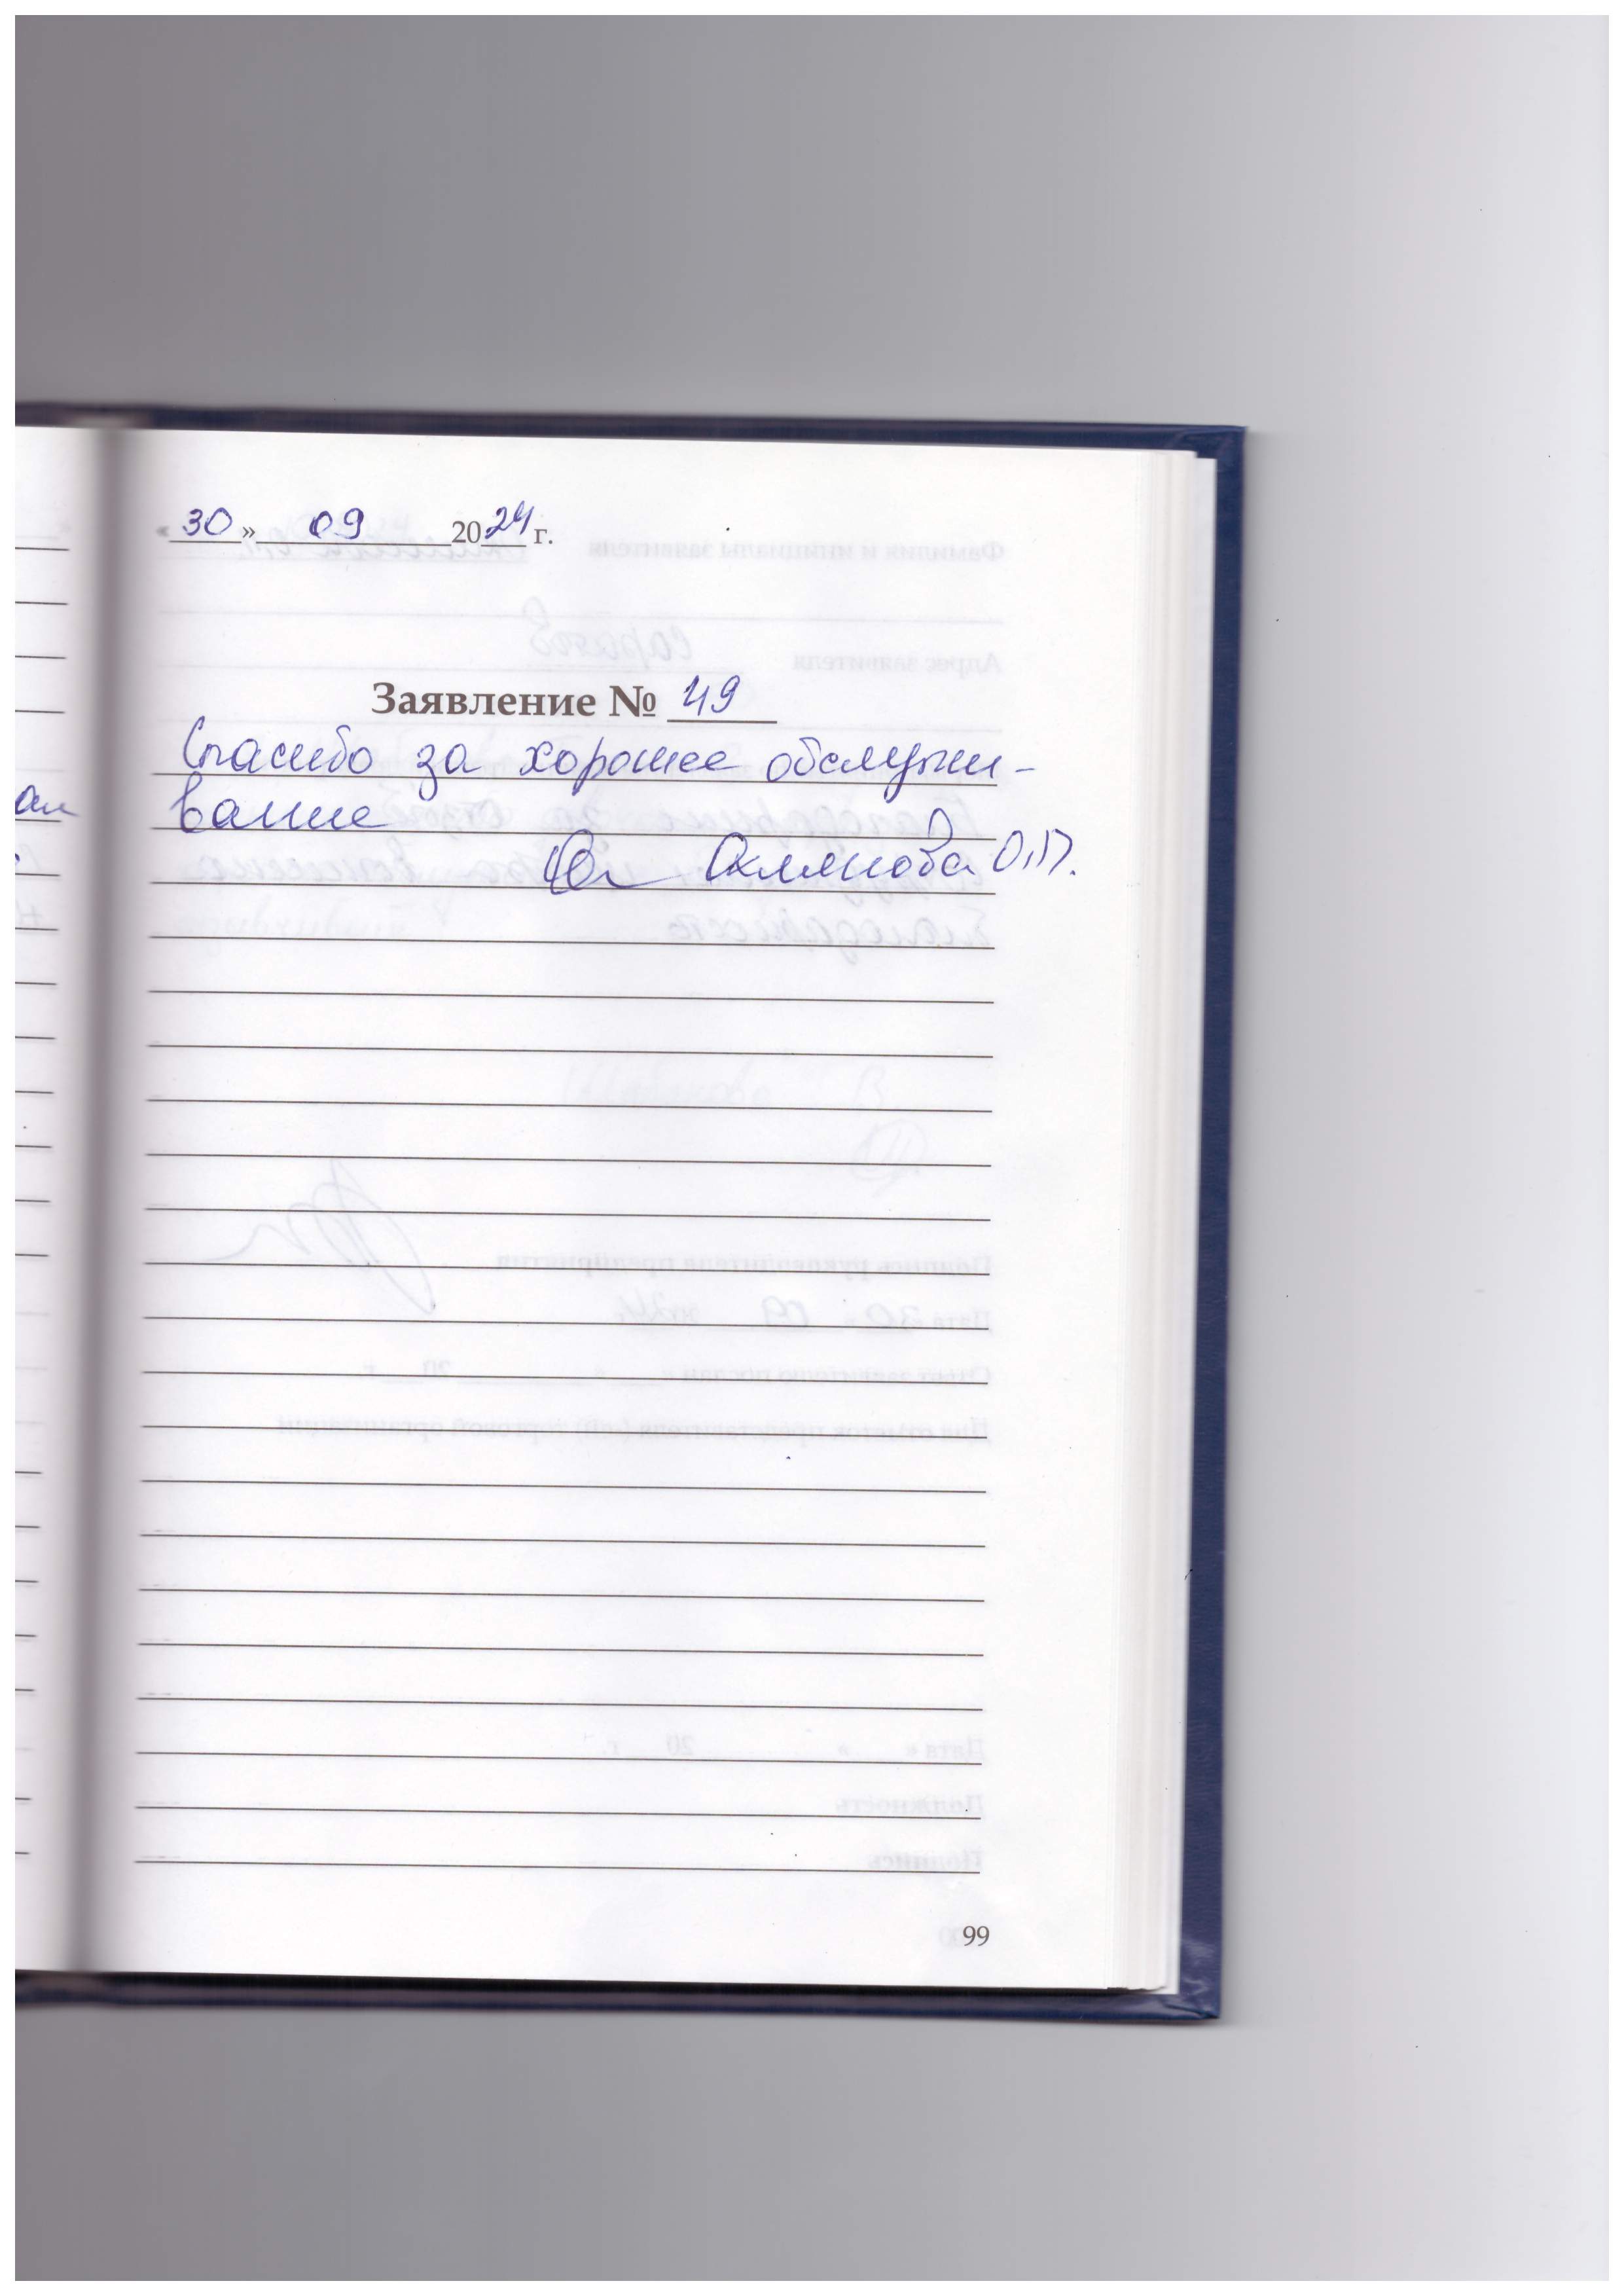 «30» 09 2024 г.
Заявление № 49
Спасибо за хорошее обслужи-
вание
О.П.
99